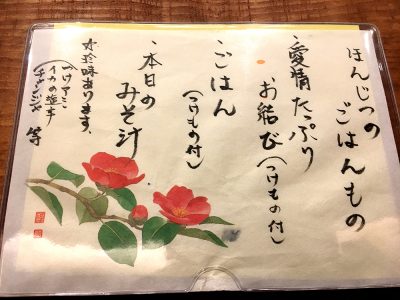 ほんじつの
ごはんもの
・愛情たっぷり
お結び(つけもの付)
・ごはん
(つけもの付)
・本日の
みそ汁
お珍味あります、
イカの塩辛
チャンジャ 等